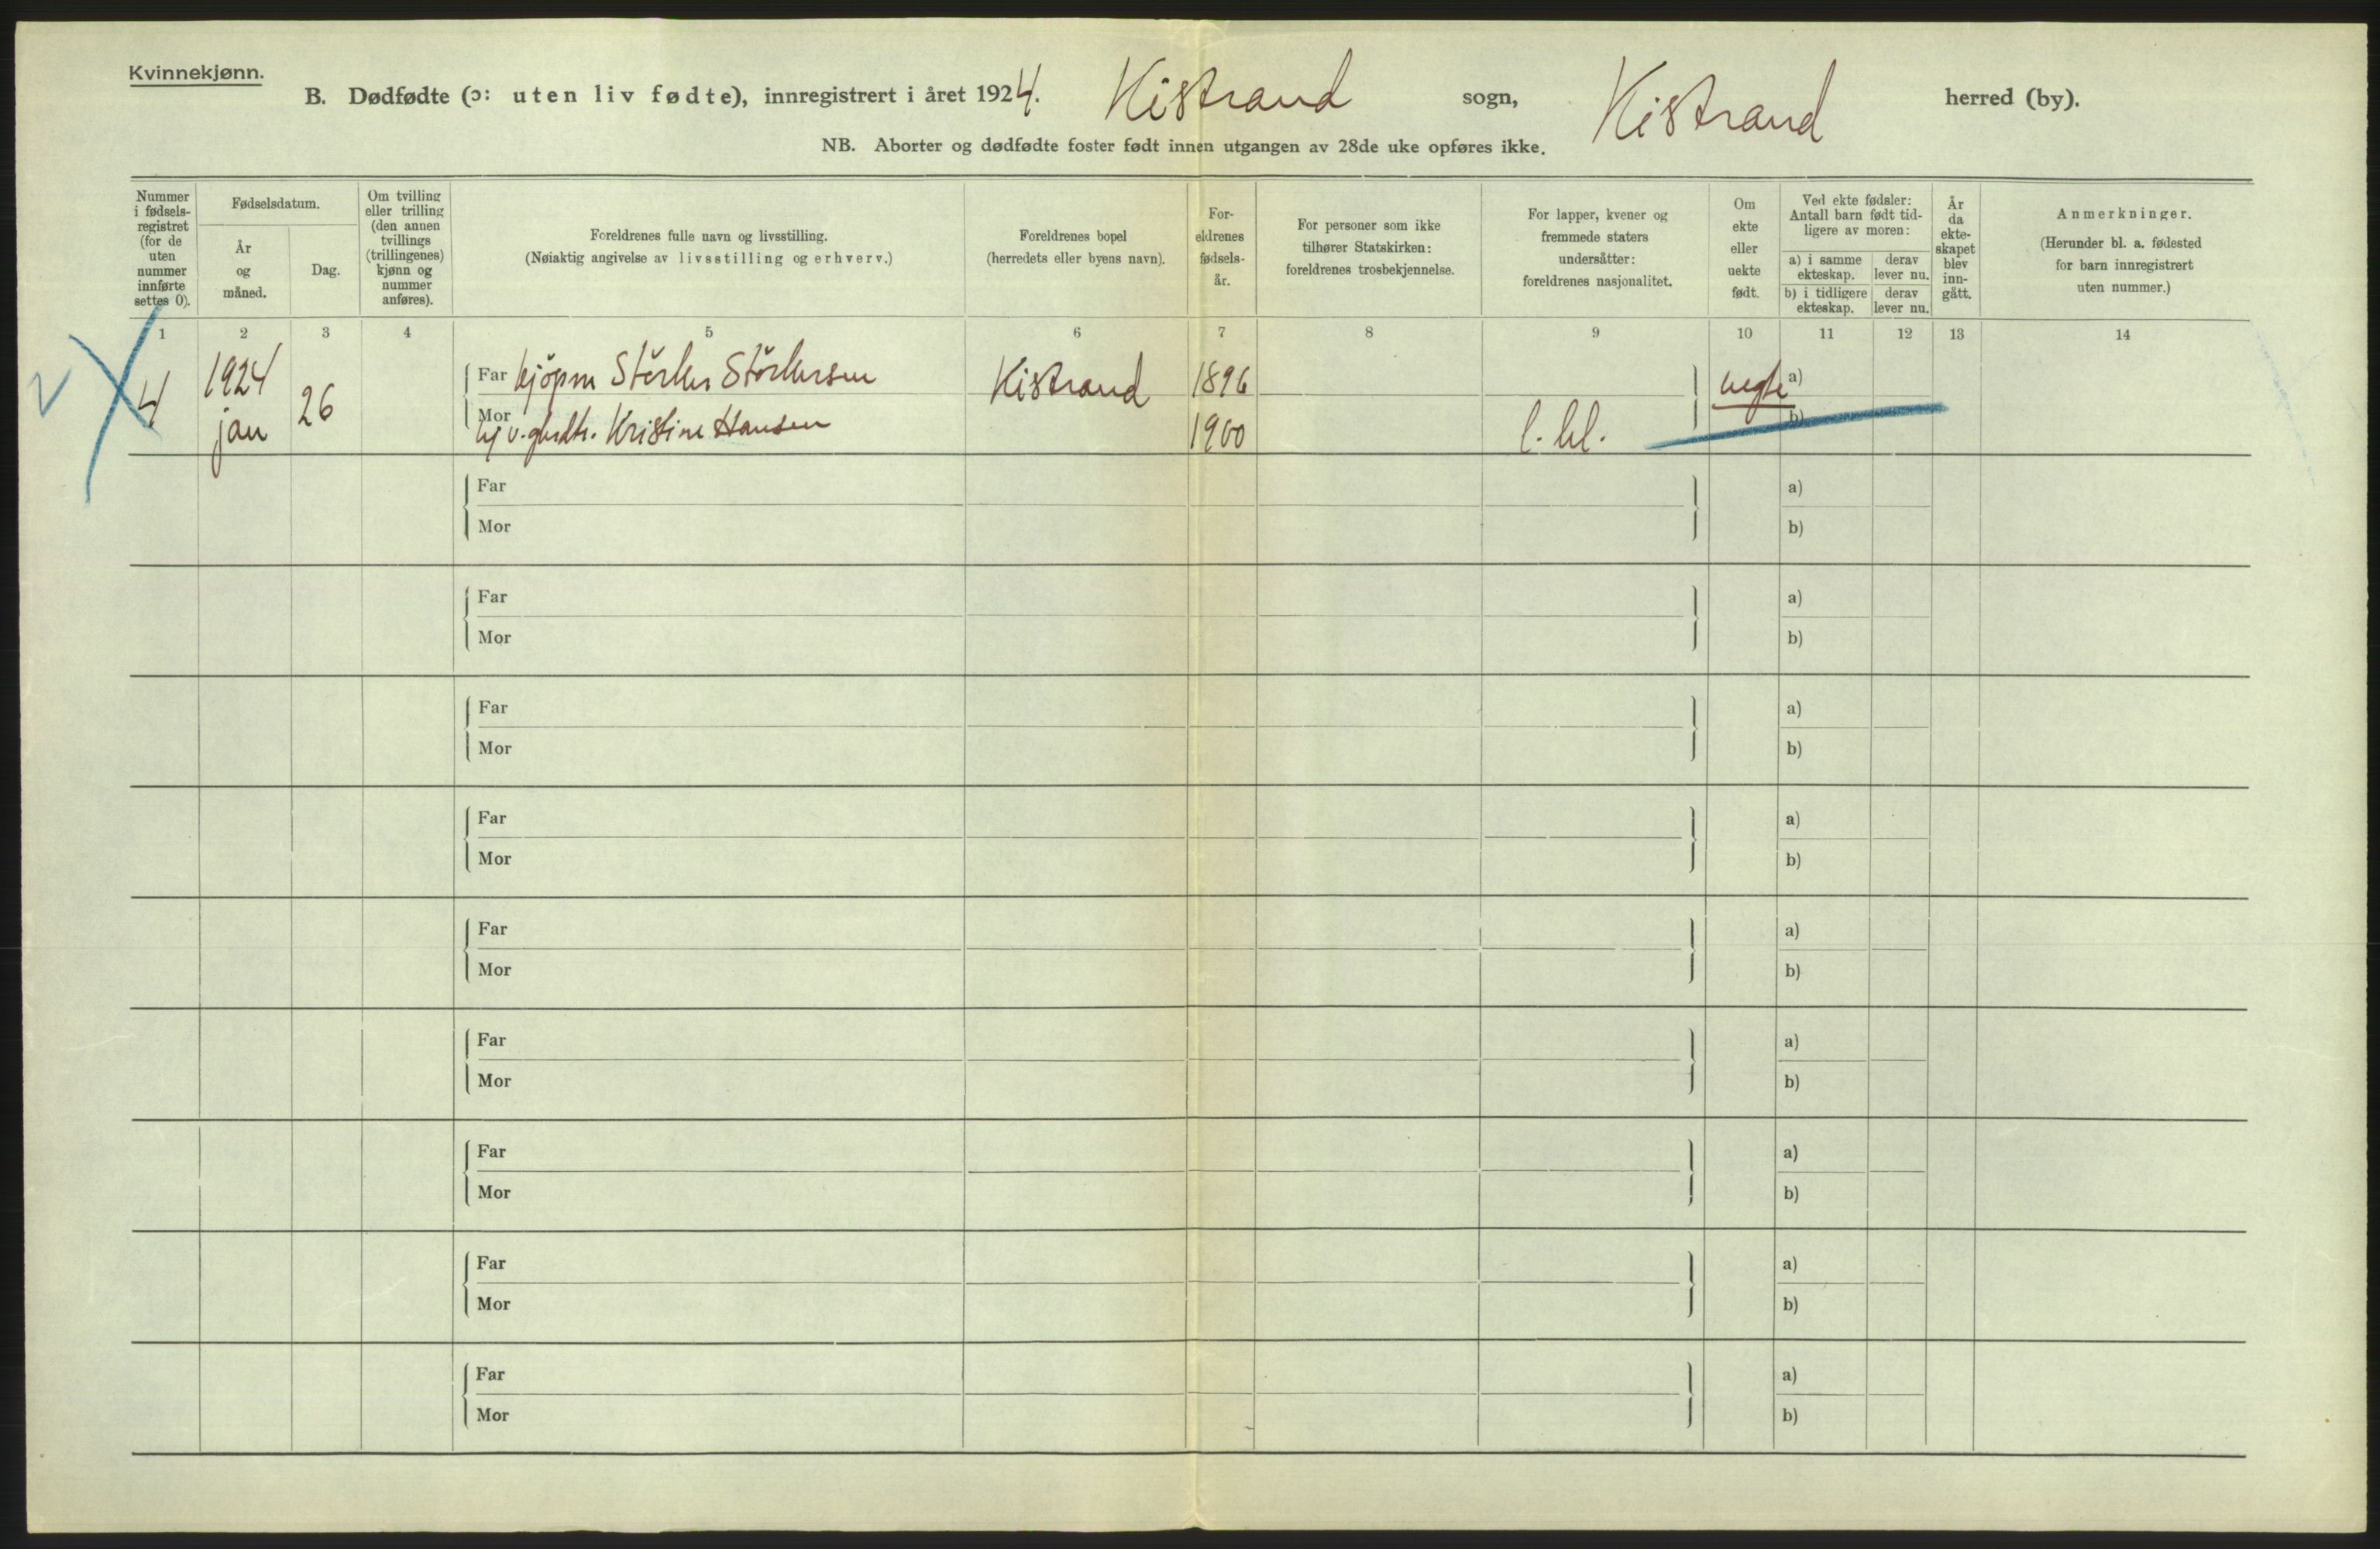 Kvinnekjønn.
B. Dødfødte (ɔ: uten liv fødte), innregistrert i året 1924. Kistrand sogn, Kistrand herred (by).
NB. Aborter og dødfødte foster født innen utgangen av 28de uke opføres ikke.
Nummer i fødselsregistret (for de uten nummer innførte settes 0).
Fødselsdatum.
År og måned.
Dag.
Om tvilling eller trilling (den annen tvillings (trillingenes) kjønn og nummer anføres).
Foreldrenes fulle navn og livsstilling.
(Nøiaktig angivelse av livsstilling og erhverv.)
Foreldrenes bopel
(herredets eller byens navn).
Foreldrenes fødselsår.
For personer som ikke tilhører Statskirken: foreldrenes trosbekjennelse.
For lapper, kvener og fremmede staters undersåtter: foreldrenes nasjonalitet.
Om ekte eller uekte født.
Ved ekte fødsler: Antall barn født tidligere av moren:
a) i samme ekteskap.
derav lever nu.
b) i tidligere ekteskap.
derav lever nu.
År da ekteskapet blev inngått.
Anmerkninger.
(Herunder bl. a. fødested for barn innregistrert uten nummer.)
1 2 3 4 5 6 7 8 9 10 11 12 13 14
4 1924 jan 26
Far kjöpm Kistrand 1896 uegte a)
Mor Kristine Hansen 1900 b)
Far a)
Mor b)
Far a)
Mor b)
Far a)
Mor b)
Far a)
Mor b)
Far a)
Mor b)
Far a)
Mor b)
Far a)
Mor b)
Far a)
Mor b)
Far a)
Mor b)